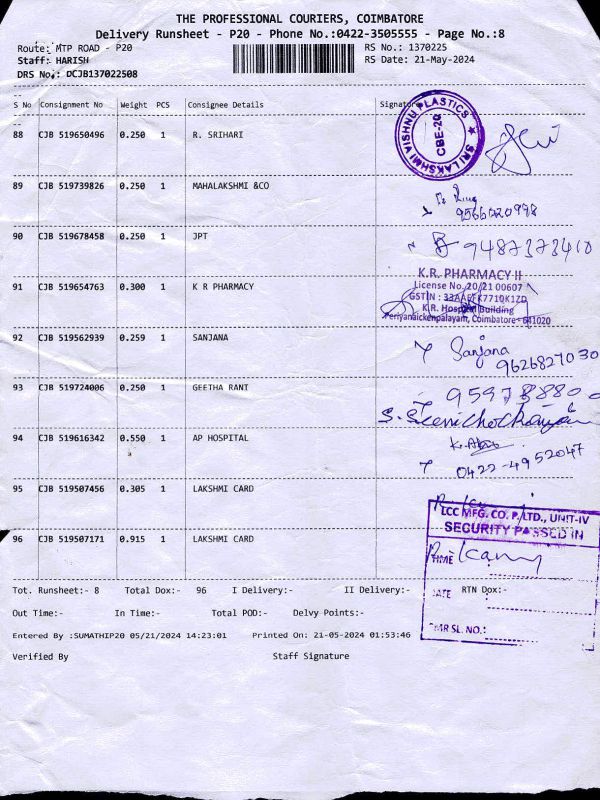 THE PROFESSIONAL COURIERS, COIMBATORE
Delivery Runsheet - P20 - Phone No.:0422-3505555 - Page No.:8
Route: MTP ROAD - P20 RS No.: 1370225
Staff: HARISH RS Date: 21-May-2024
DRS No.: DCJB137022508
S No Consignment No Weight PCS Consignee Details Signature
88 CJB 519650496 0.250 1 R. SRIHARI
SRI LAKSHMI VISHNU PLASTICS ★ CBE-20
89 CJB 519739826 0.250 1 MAHALAKSHMI &CO
90 CJB 519678458 0.250 1 JPT 9487373410
91 CJB 519654763 0.300 1 K R PHARMACY
K.R. PHARMACY II
License No. 20/21 00607
GSTIN : 33AAEFK7710K1ZD
K.R. Hospital Building
Periyanaickenpalayam, Coimbatore - 641020
92 CJB 519562939 0.259 1 SANJANA Sanjana
9626827030
93 CJB 519724006 0.250 1 GEETHA RANI
94 CJB 519616342 0.550 1 AP HOSPITAL
0422-4952047
95 CJB 519507456 0.305 1 LAKSHMI CARD
LCC MFG. CO. P/LTD., UNIT-IV
SECURITY PASSED IN
96 CJB 519507171 0.915 1 LAKSHMI CARD
TIME
DATE
Tot. Runsheet:- 8 Total Dox:- 96 I Delivery:- II Delivery:- RTN Dox:-
Out Time:- In Time:- Total POD:- Delvy Points:-
SL. NO.:
Entered By :SUMATHIP20 05/21/2024 14:23:01 Printed On: 21-05-2024 01:53:46
Verified By Staff Signature